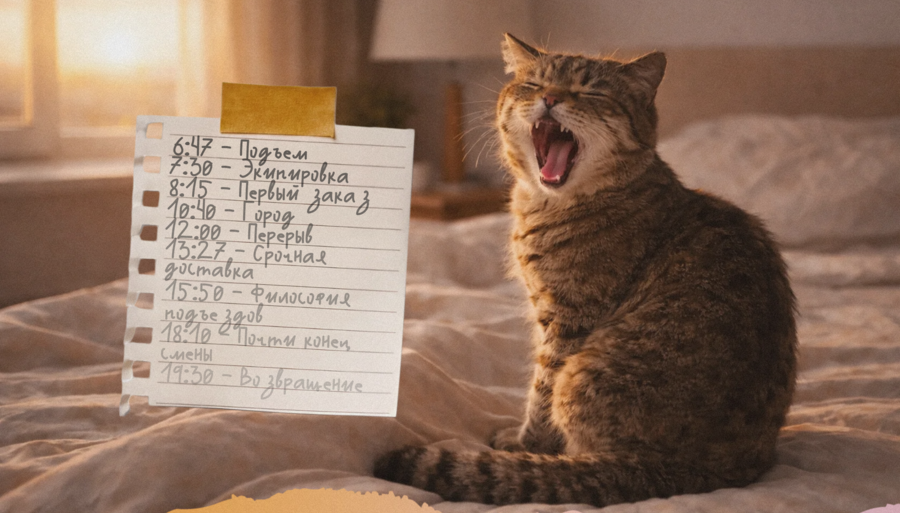 6:47 - Подъем
7:30 - Экипировка
8:15 - Первый заказ
10:40 - Город
12:00 - Перерыв
13:27 - Срочная
доставка
15:50 - Философия
подъездов
18:10 - Почти конец
смены
19:30 - Возвращение